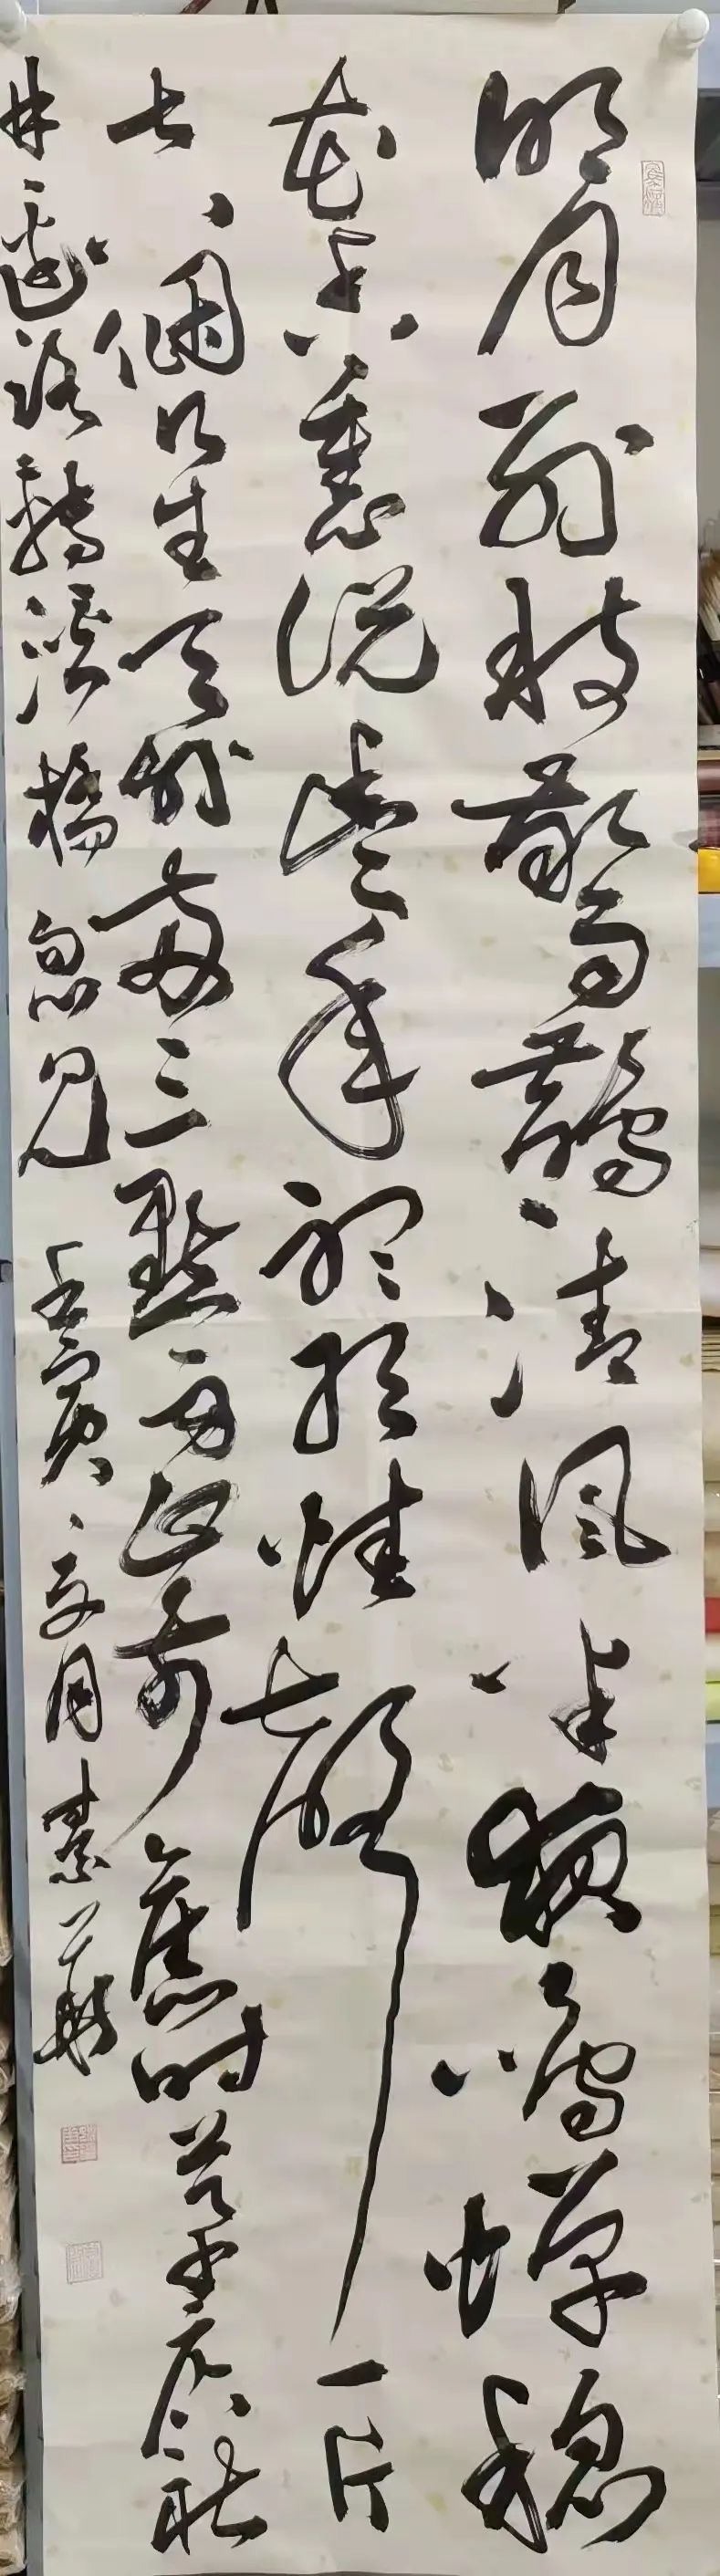 明月别枝驚鵲清風半夜鳴蟬稻
花香裏說豐年聽取蛙聲一片
七八個星天外兩三點雨山前舊時茅店社
林邊路轉溪橋忽見 壬寅夏月素